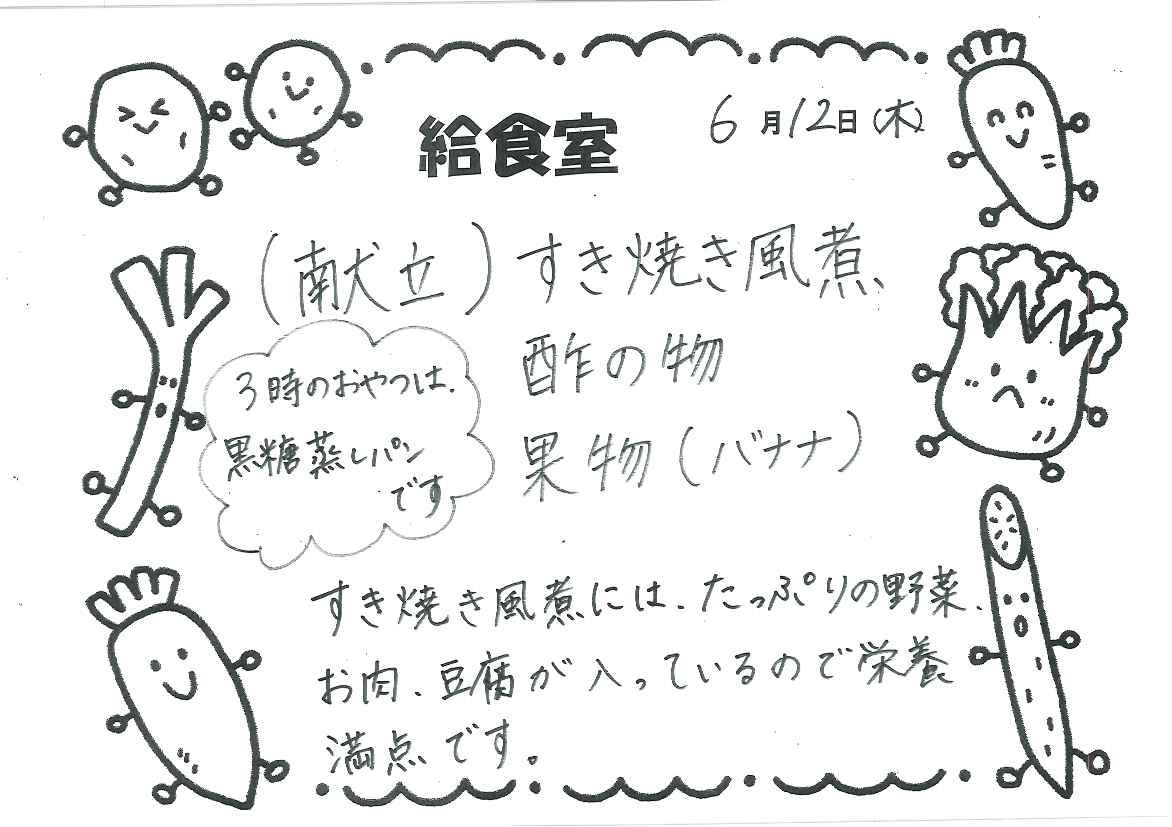 給食室
6月12日(木)
(献立)すき焼き風煮
酢の物
果物(バナナ)
3時のおやつは、
黒糖蒸しパン
です
すき焼き風煮には、たっぷりの野菜、
お肉、豆腐が入っているので栄養
満点です。